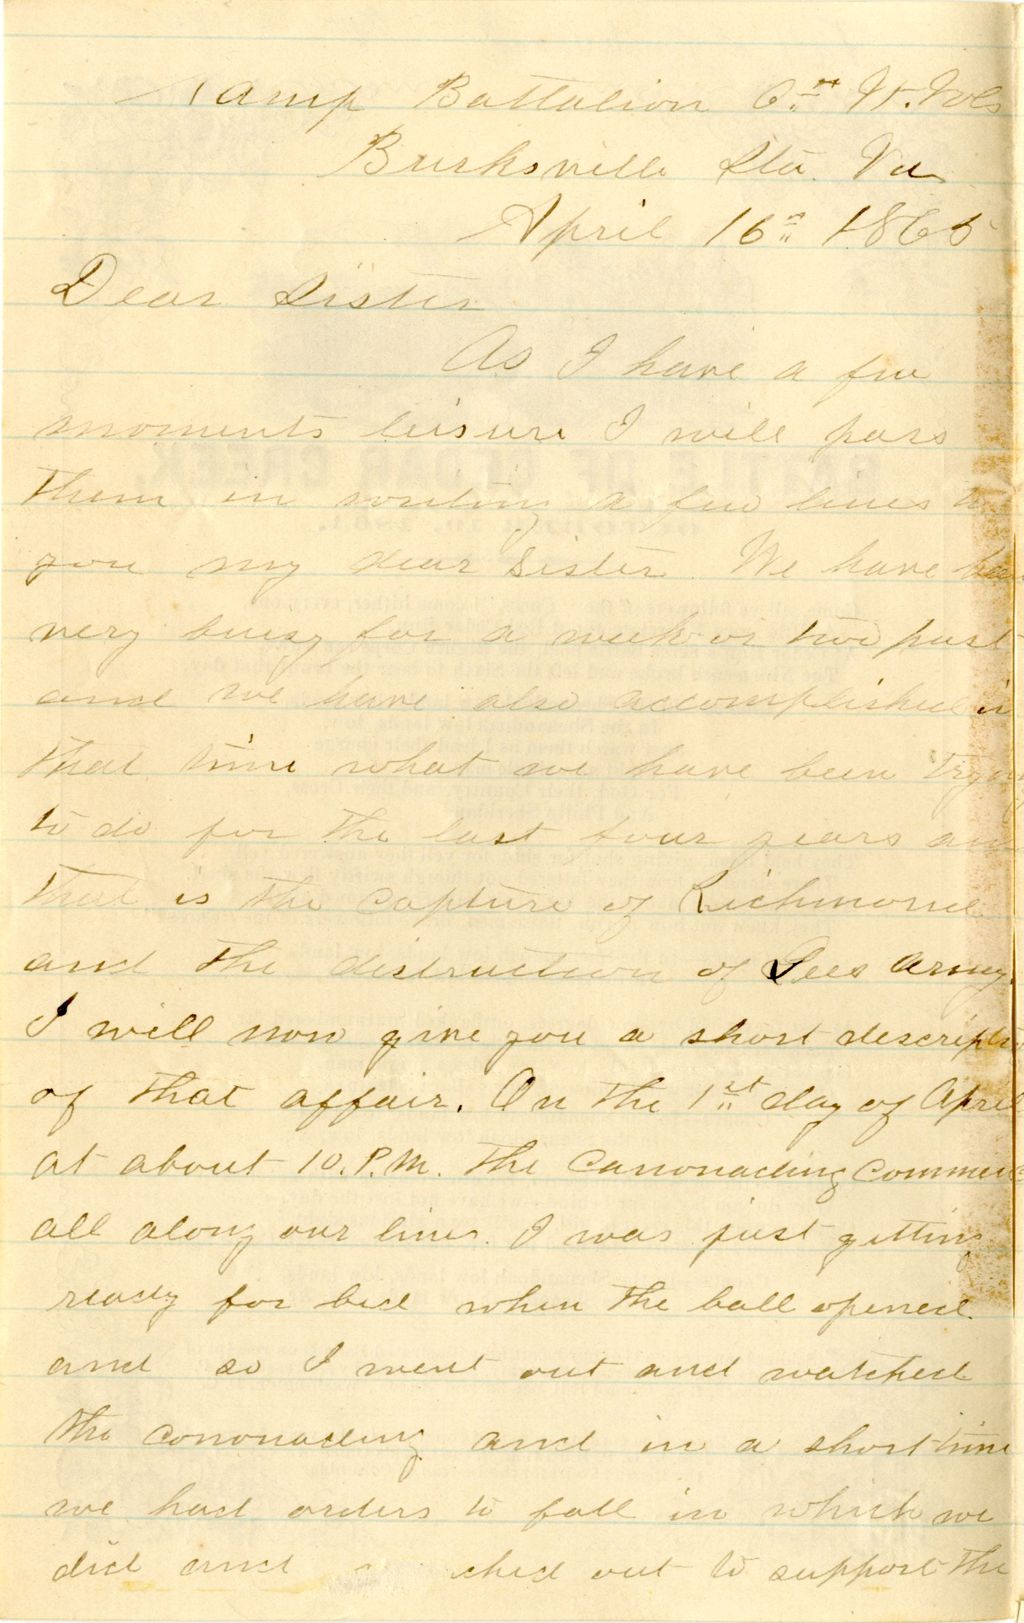 Kamp Battalion 6th Vt. Vols
Burksville Sta. Va
April 16th 1865
Dear Sister
As I have a few
moments leisure I will pass
them in writing a few lines to
you my dear Sister. We have
very busy for a week or two past
and we have also accomplished in
that time what we have been trying
to do for the last four years and
that is the capture of Richmond
and the distruction of Lees Army.
I will now give you a short descripti
of that affair. On the 1st day of April
at about 10. P.M. the Cannonading commenc
all along our lines. I was just getting
ready for bed when the ball opened
and so I went out and watched
the cononading and in a short time
we had orders to fall in which we
did and ched out to support the